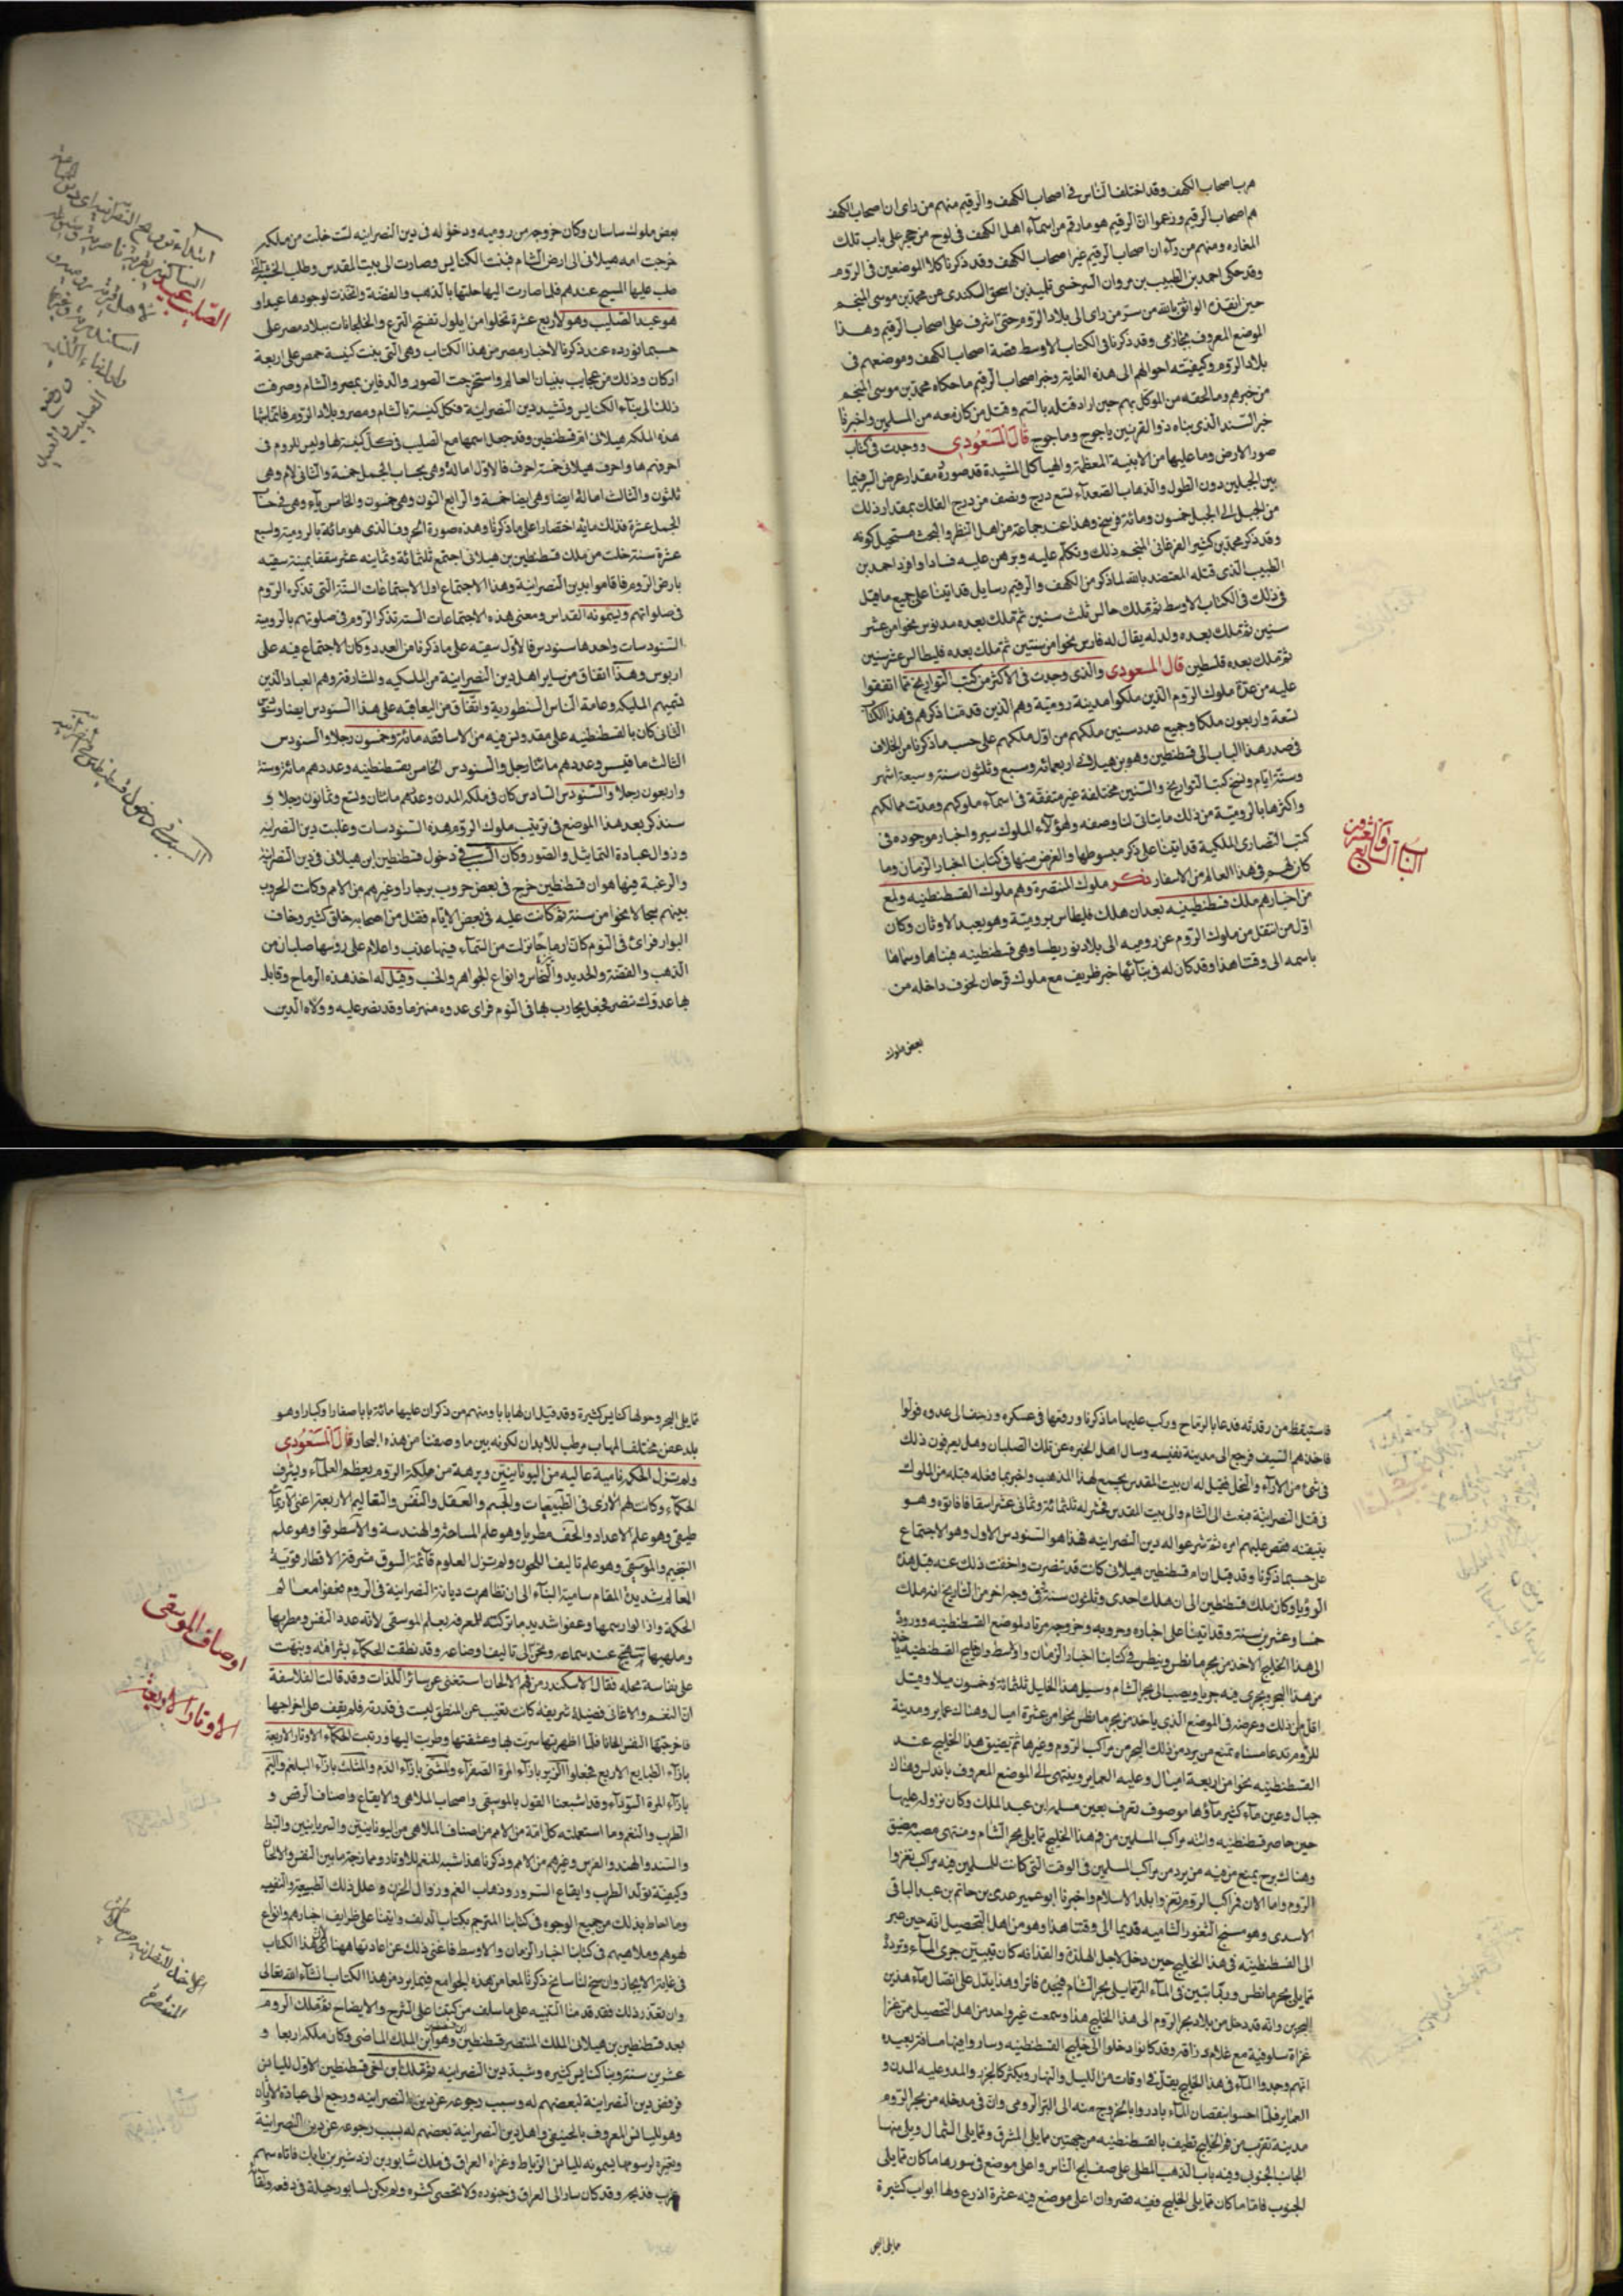 هرب اصحاب الكهف وقد اختلف الناس فى اصحاب الكهف والرقيم منهم من راى ان اصحاب الكهف
هم اصحاب الرقيم وزعموا ان الرقيم هو مارقم من اسماء اهل الكهف فى لوح من حجر على باب تلك
المغاره ومنهم من رآى ان اصحاب الرقيم غير اصحاب الكهف وقد ذكرنا كلا الموضعين فى الروم
وقد حكى احمد بن الطيب بن مروان السرخسى تلميذ بن اسحق الكندى عن محمد بن موسى المنجم
حين انفذه الواثق بالله من سر من راى الى بلاد الروم حتى اشرف على اصحاب الرقيم وهذا
الموضع المعروف بخارمى وقد ذكرنا فى الكتاب الاوسط قصة اصحاب الكهف وموضعهم فى
بلاد الروم وكيفيته احوالهم الى هذه الغاية وخبر اصحاب الرقيم ما حكاه محمد بن موسى المنجم
من خبرهم وما لحقه من الموكل بهم حين اراد قتله بالسم وقتل من كان معه من المسلمين واخبرنا
خبر السند الذى بناه ذوا القرنين ياجوج وماجوج قال المسعودى ووجدت فى كتاب
صور الارض وما عليها من الابنية المعظمة والهياكل المشيدة قد صوره مقدار عرض البرفيما
بين الجبلين دون الطول والذهاب الصعدآء تسع درج ونصف من درج الفلك بمقدار ذلك
من الجبل الى الجبل خمسون ومائة فرسخ وهذا عند جماعة من اهل النظر والبحث مستحيل كونه
وقد ذكر محمد بن كثير الفرغانى المنجم ذلك وتكلم عليه وبرهن عليه فسادا وافرد احمد بن
الطيب الذى قتله المعتضد بالله لما ذكر من الكهف والرقيم رسايل قد اتينا على جميع ما قيل
فى ذلك فى الكتاب الاوسط ثم تملك حالس ثلث سنين ثم تملك بعده مدنوس نحوا من عشر
سنين ثم تملك بعده ولد له يقال له فارس نحوا من سنتين ثم تملك بعده فليطالس عشر سنين
ثم تملك بعده قلسطين قال المسعودى والذى وجدت فى الاكثر من كتب التواريخ مما اتفقوا
عليه من عدة ملوك الروم الذين ملكوا مدينة رومية وهم الذين قدمنا ذكرهم فى هذا الكتا
تسعة واربعون ملكا وجميع عدد سنين ملكهم من اول ملكهم على حسب ما ذكرنا من الخلاف
فى صدر هذا الباب الى قسطنطين وهو بن هيلانى اربعمائه وسبع وثلثون سنة وسبعة اشهر
وستة ايام ونسخ كتب التواريخ والسنين مختلفة غير متفقة فى اسمآء ملوكهم ومدت ممالكهم
واكثرها بالرومية من ذلك ما يتاتى لنا وصفه ولهؤلآء الملوك سير واخبار موجوده فى
كتب النصارى الملكية قد اتينا على ذكر مبسوطها والغرض منها فى كتابنا اخبار الزمان وما
كان لهم فى هذا العالم من الاسفار ذكر ملوك المتنصرة وهم ملوك القسطنطنيه ولمع
من اخبارهم ملك قسطنطينيه بعد ان هلك فليطاس برومية وهو يعبد الاوثان وكان
اول من انتقل من ملوك الروم عن روميه الى بلاد نوريطيا وهى قسطنطنيه فبناها وسماها
باسمه الى وقتنا هذا وقد كان له فى بنآئها خبر ظريف مع ملوك قرحان لخوف داخله من
بعض ملوك
الباب السابع والعشرون
بعض ملوك ساسان وكان خروجه من روميه ودخوله فى دين النصرانيه لسنة خلت من ملكه
خرجت امه هيلانى الى ارض الشام فبنت الكنايس وصارت الى بيت المقدس وطلب الخشبة التى
صلب عليها المسيح عندهم فلما صارت اليها حلتها بالذهب والفضة واتخذت لوجودها عيدا و
هو عيد الصليب وهو لاربع عشرة تخلوا من ايلول تفتح الترع والخليجانات ببلاد مصر على
حسبما نورده عند ذكرنا لاخبار مصر من هذا الكتاب وهى التى بنت كنيسة حمص على اربعة
اركان وذلك من عجايب بنيان العالم واستخرجت الصور والدفاين بمصر والشام وصرفت
ذلك الى بنآء الكنايس وتشييد دين النصرانية فكل كنيسة بالشام ومصر وبلاد الروم فانما بنتها
هذه الملكه هيلانى ام قسطنطين وقد جعل اسمها مع الصليب فى كل كنيسة لها وليس للروم فى
احرفهم ها واحرف هيلانى خمسة احرف فالاول امالة وهى بحساب الجمل خمسة والثانى لام وهى
ثلثون والثالث امالة ايضا وهى ايضا خمسة والرابع النون وهى خمسون والخامس يآء وهى فى حسا
الجمل عشرة فذلك مايه اختصارا على ما ذكرنا وهذه صورة الحروف الذى هو مائه بالرومية ولسبع
عشرة سنة خلت من ملك قسطنطين بن هيلانى اجتمع ثلثمائة وثمانيه عشر سقفا بمينة سقيه
بارض الروم فاقاموا بدين النصرانية وهذا الاجتماع اول الاجتماعات الستة التى تذكره الروم
فى صلواتهم ويسمونه القداس ومعنى هذه الاجتماعات السته تذكر الروم فى صلوتهم بالرومية
السنودسات واحدها سنودس فالاول سقيه على ما ذكرنا من العدد وكان الاجتماع فيه على
اريوس وهذا اتفاق من ساير اهل دين النصرانية من الملكيه والمشارقة وهم العباد الذين
الثانى كان بالقسطنطنيه على مقدونس فيه من الاساقفه مائة وخمسون رجلا والسنودس
الثالث ما قيس وعددهم مائتا رجل والسنودس الخامس بقسطنطنيه وعددهم مائة وستة
واربعون رجلا والسنودس السادس كان فى ملكة المدن وعددهم مائتان وتسع وثمانون رجلا و
سنذكر بعد هذا الموضع فى ترتيب ملوك الروم هذه السنودسات وغلبت دين النصرانيه
وزوال عبادة التماثيل والصور وكان السبب فى دخول قسطنطين ابن هيلانى فى دين النصرانية
والرغبة فيها هو ان قسطنطين خرج فى بعض حروب برجا را وغيرهم من الامم وكانت الحروب
بينهم سجالا نحوا من سنة ثم كانت عليه فى بعض الايام فقتل من اصحابه خلق كثير وخاف
البوار فراى فى النوم كان رماحا نزلت من السمآء فيها عذب واعلام على روسها صلبان من
الذهب والفضة والحديد والنحاس وانواع الجواهر والخشب وقيل له اخذ هذه الرماح وقابل
بها عدوك تنصر فجعل يحارب بها فى النوم فراى عدوه منهزما وقد نصر عليه وولاه الدبر
الصليب عيد
السبب فى دخول قسطنطين فى النصرانيه
فاستيقظ من رقدته فدعا بالرماح وركب عليها ما ذكرنا ورفعها فى عسكره وزحف الى عدوه فولوا
فاخذهم السيف فرجع الى مدينة نفيسه وسال اهل الخبره عن تلك الصلبان وهل يعرفون ذلك
فى شئ من الارآء والنحل فقيل له ان بيت المقدس يجمع هذا المذهب واخبر بما فعله قبله من الملوك
فى قتل النصرانية فبعث الى الشام والى بيت المقدس فحشر له ثلثمائة وثمانى عشر اسقفا فاتوه وهو
بنيقيه فقص عليهم امره ثم شرعوا له دين النصرانيه فهذا هو السنودس الاول وهو الاجتماع
على حسبما ذكرنا وقد قيل ان ام قسطنطين هيلانى كانت قد تنصرت واخفت ذلك عنه قبل هذ
الرويا وكان ملك قسطنطين الى ان هلك احدى وثلثون سنة وفى وجه اخر من التاريخ انه ملك
خمسا وعشرين سنة وقد اتينا على اخباره وحروبه وخروجه مرتاد لموضع القسطنطنيه ووروده
من هذا البحر ويجرى فيه جريا ويصب الى بحر الشام ومسيل هذا الخليل ثلثمائة وخمسون ميلا وقيل
اقل من ذلك وعرضه فى الموضع الذى ياخذ من بحر مانطس نحوا من عشرة اميال وهناك عماير ومدينة
للروم تدعا مسناه تمنع من يرد من ذلك البحر من مراكب الروم وغيرها ثم يضيق هذا الخليج عند
القسطنطنيه نحوا من اربعة اميال وعليه العماير وينتهى الى الموضع المعروف باندلس وهناك
جبال وعين مآء كثير مآؤها موصوف تعرف بعين مسلمه ابن عبد الملك وكان نزوله عليها
حين حاصر قسطنطنيه واتته مراكب المسلمين من فم هذا الخليج مما يلى بحر الشام ومنتهى مصبه مضيق
وهناك برج يمنع من فيه من يرد من مراكب المسلمين فى الوقت التى كانت للمسلمين فيه مراكب تغزوا
الروم واما الان فمراكب الروم تغزوا بلد الاسلام واخبرنا ابو عمير عدى بن حاتم بن عبد الباقى
الاسدى وهو شيخ الثغور الشاميه قديما الى وقتنا هذا وهو من اهل التحصيل انه حين عبر
الى القسطنطنيه فى هذا الخليج حين دخل لاجل الهدنة والفدا انه كان يتبين جرى المآء وتردده
مما يلى بحر مانطس وربما تبين فى المآء المر مما يلى بحر الشام فيجده فاترا وهذا يدل على اتصال مآء هذين
البحرين وانه قد دخل من بلاد بحر الروم الى هذا الخليج هذا وسمعت غير واحد من اهل التحصيل ممن غزا
غزاة سلوفية مع غلام زراقه وقد كانوا دخلوا الى خليج القسطنطنيه وساروا فيها مسافة بعيده
انهم وجدوا المآء فى هذا الخليج يقل فى اوقات من الليل والنهار ويكثر كالجزر والمد وعليه المدن و
العمآير فلما احسوا بنقصان المآء بادروا بالخروج منه الى البر الرومى وان فى مدخله من بحر الروم
مدينة تقرب من فم الخليج تطيف بالقسطنطنيه من جهتين مما يلى المشرق ومما يلى الشمال ويلى منها
الجانب الجنوب وفيه باب الذهب المطلى على صفايح النحاس واعلى موضع فى سورها ما كان مما يلى
الجنوب فاما ما كان مما يلى الخليج ففيه قصر وان اعلى موضع فيه عشرة اذرع ولها ابواب كثيرة
مما يلى البحر وحولها كنايس كثيرة وقد قيل ان لها بابا ومنهم من ذكر ان عليها مائة بابا صغارا وكبارا وهو
بلد عفن مختلف المهاب مرطب للابدان لكونه بين ما وصفنا من هذه البحار قال المسعودى
ولم تزل الحكمة نامية عاليه من اليونانيين وبرهة من مملكة الروم يعظم العلمآء ويشرف
الحكمآء وكانت لهم الارى فى الطبيعيات والجسم والعقل والنفس والتعاليم الاربعة اعنى الارتما
طيقى وهو علم الاعداد والجومطريا وهو علم المساحة والهندسة والاسطرقوا وهو علم
التنجيم والموسيقى وهو علم تاليف اللحون ولم تزل العلوم قآئمة السوق مشرقة الاقطار قوية
المعالم شديدة المقام سامية البنآء الى ان تظاهرت ديانة النصرانية فى الروم فعفوا معالم
الحكمة وازالوا رسمها وعفوا شديد ما تركته للمعرفه بعلم الموسقى لانه عدد النفس ومطربها
وملهيها تنتهج عند سماعه وتحن الى تاليفه اوضاعه وقد نطقت الحكمآء بشرافته ونبهت
على نفاسة محله فقال الاسكندر من فهم الالحان استغنى عن سائر اللذات وقد قالت الفلاسفة
ان النغم والاغانى فضيلة شريفه كانت تغيب عن المنطق ليست فى قدرته فلم يقف على اخراجها
فاخرجتها النفس الحانا فلما اظهرتها سرت بها وعشقتها وطربت اليها ورتبت الحكمآء الاوتار الاربعة
بازآء الطبايع الاربع فجعلوا الزير بازآء المرة الصفرآء والمثنى بازآء الدم والمثلث بازآء البلغم والبم
بازآء المرة السودآء وقد اشبعنا القول بالموسيقى واصحاب الملاهى والايقاع واصناف الرقص و
الطرب والنغم وما استعملته كل امة من الامم من اصناف الملاهى من اليونانيين والسريانيين والنبط
والسند والهند والفرس وغيرهم من الامم وذكرنا هذا شبه للنغم للاوتار وممازجة ما بين النفس والالحا
وكيفية تولد الطرب وايقاع السرور وذهاب الغم وزوال الحزن وعلل ذلك الطبيعية والنفسيه
وما احاط بذلك من جميع الوجوه فى كتابنا المترجم بكتاب الدلف واتينا على ظرايف اخبارهم وانواع
لهوهم وملاهيهم فى كتابنا اخبار الزمان والاوسط فاغنى ذلك عن اعادتها ههنا لان هذا الكتاب
فى غاية الايجاز وان سنح لنا سانح ذكرنا لمعا من هذه الجوامع فيما يرد من هذا الكتاب انشآء الله تعالى
وان تعذر ذلك فقد قدمنا التنبيه على ما سلف من كتبنا على الشرح والايضاح ثم تملك الروم
بعد قسطنطين بن هيلانى الملك المتنصر قسطنطين وهو ابن الملك الماضى وكان ملكه اربعا و
عشرين سنة وبنا كنايس كثيره وشيد دين النصرانيه ثم تملك ابن اخى قسطنطين الاول لليانس
فرفض دين النصرانية لبعضهم له وسبب رجوعه عن دين النصرانيه ورجع الى عبادة الاوثان
وهو لليانس المعروف بالحنيفى واهل دين النصرانية بعضهم له بسبب رجوعه عن دين النصرانية
وبغيره لرسومها يسمونه لليانس الزباط وغزاء العراق فى ملك شابور بن اردشير بن بابك فاتاه سهم
غرب فذبحه وقد كان سار الى العراق فى جنوده ولا تحصى كثره ولم يكن لسابور حيلة فى دفعه
اوصاف الموسقى
الاوتار الاربعة